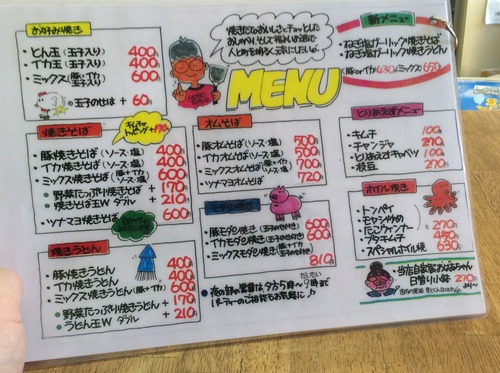 お好み焼き
・とん玉(玉子入り) 400円
・イカ玉(玉子入り) 400円
・ミックス(豚・イカ 玉子入り) 600円
玉子のせは + 60円
MENU
新メニュー
・ねぎ塩ガーリック焼きそば
・ねぎ塩ガーリック焼きうどん
(豚orイカ)430(ミックス)650円
焼きそば
キムチ
トッピング+170
・豚焼きそば(ソース・塩) 400円
・イカ焼きそば(ソース・塩) 400円
・ミックス焼きそば(豚・イカ) 600円
・野菜たっぷり焼きそば +170円
・焼きそば玉W ダブル +210円
・ツナマヨ焼きそば 600円
オムそば
・豚オムそば(ソース・塩) 500円
・イカオムそば(ソース・塩) 500円
・ミックスオムそば 700円
・ツナマヨオムそば 720
とりあえずメニュー
・キムチ 100円
・チャンジャ 270円
・とりあえずキャベツ 100円
・枝豆 270円
・豚モダン焼き 600円
・イカモダン焼き 600円
・ミックスモダン焼き 810
ホイル焼き
・トンペイ
・モヤシ炒め
・たこウインナー 270円
・ブタキムチ 450円
・スペシャルホイル焼 630円
焼きうどん
・豚焼きうどん 400円
・イカ焼きうどん 400円
・ミックス焼きうどん(豚・イカ) 600円
・野菜たっぷり焼きうどん +170円
・うどん玉W ダブル +210円
・夜の部の営業は夕方5時〜9時まで
パーティーのご相談もお気軽に♪
当店自家製おばあちゃん
日替り小鉢 270円
より〜